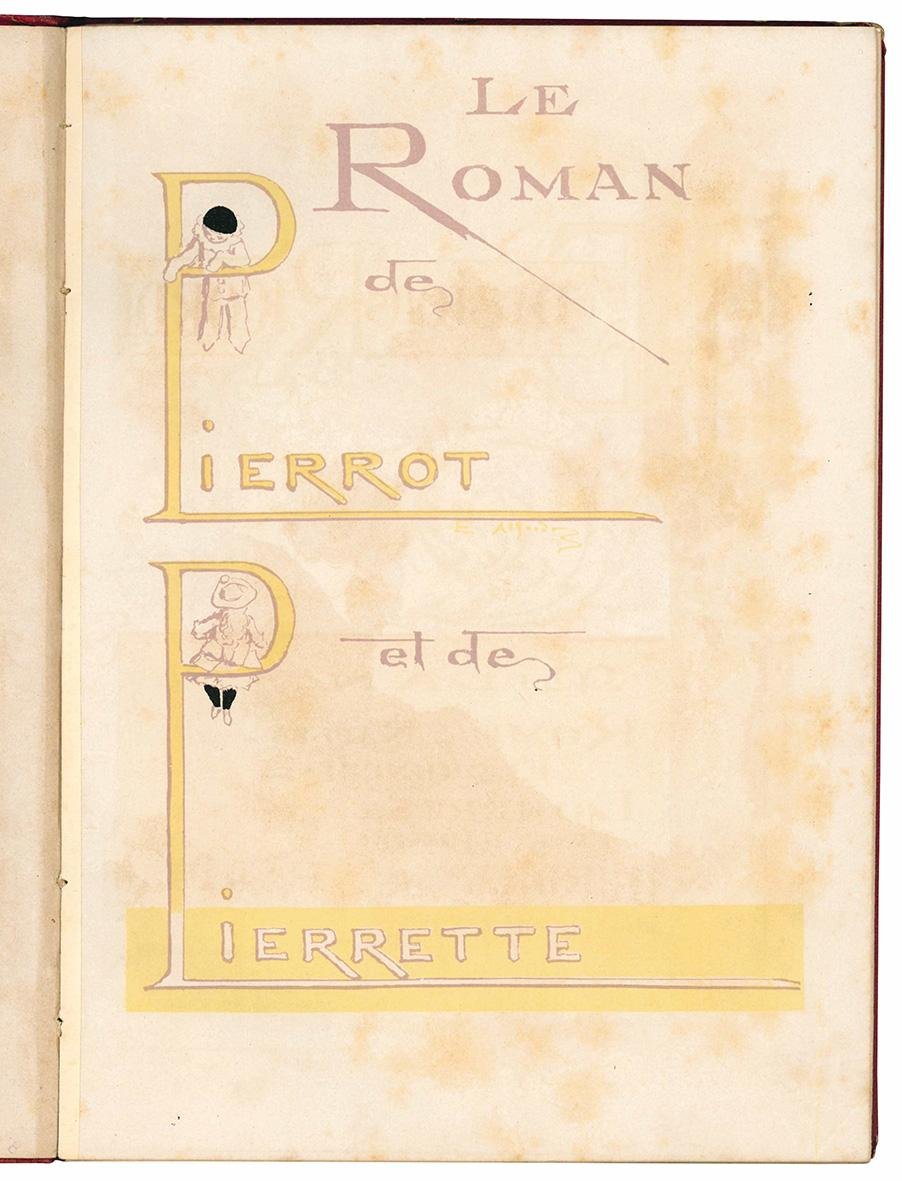 LE
ROMAN
de
PIERROT
et de
PIERRETTE